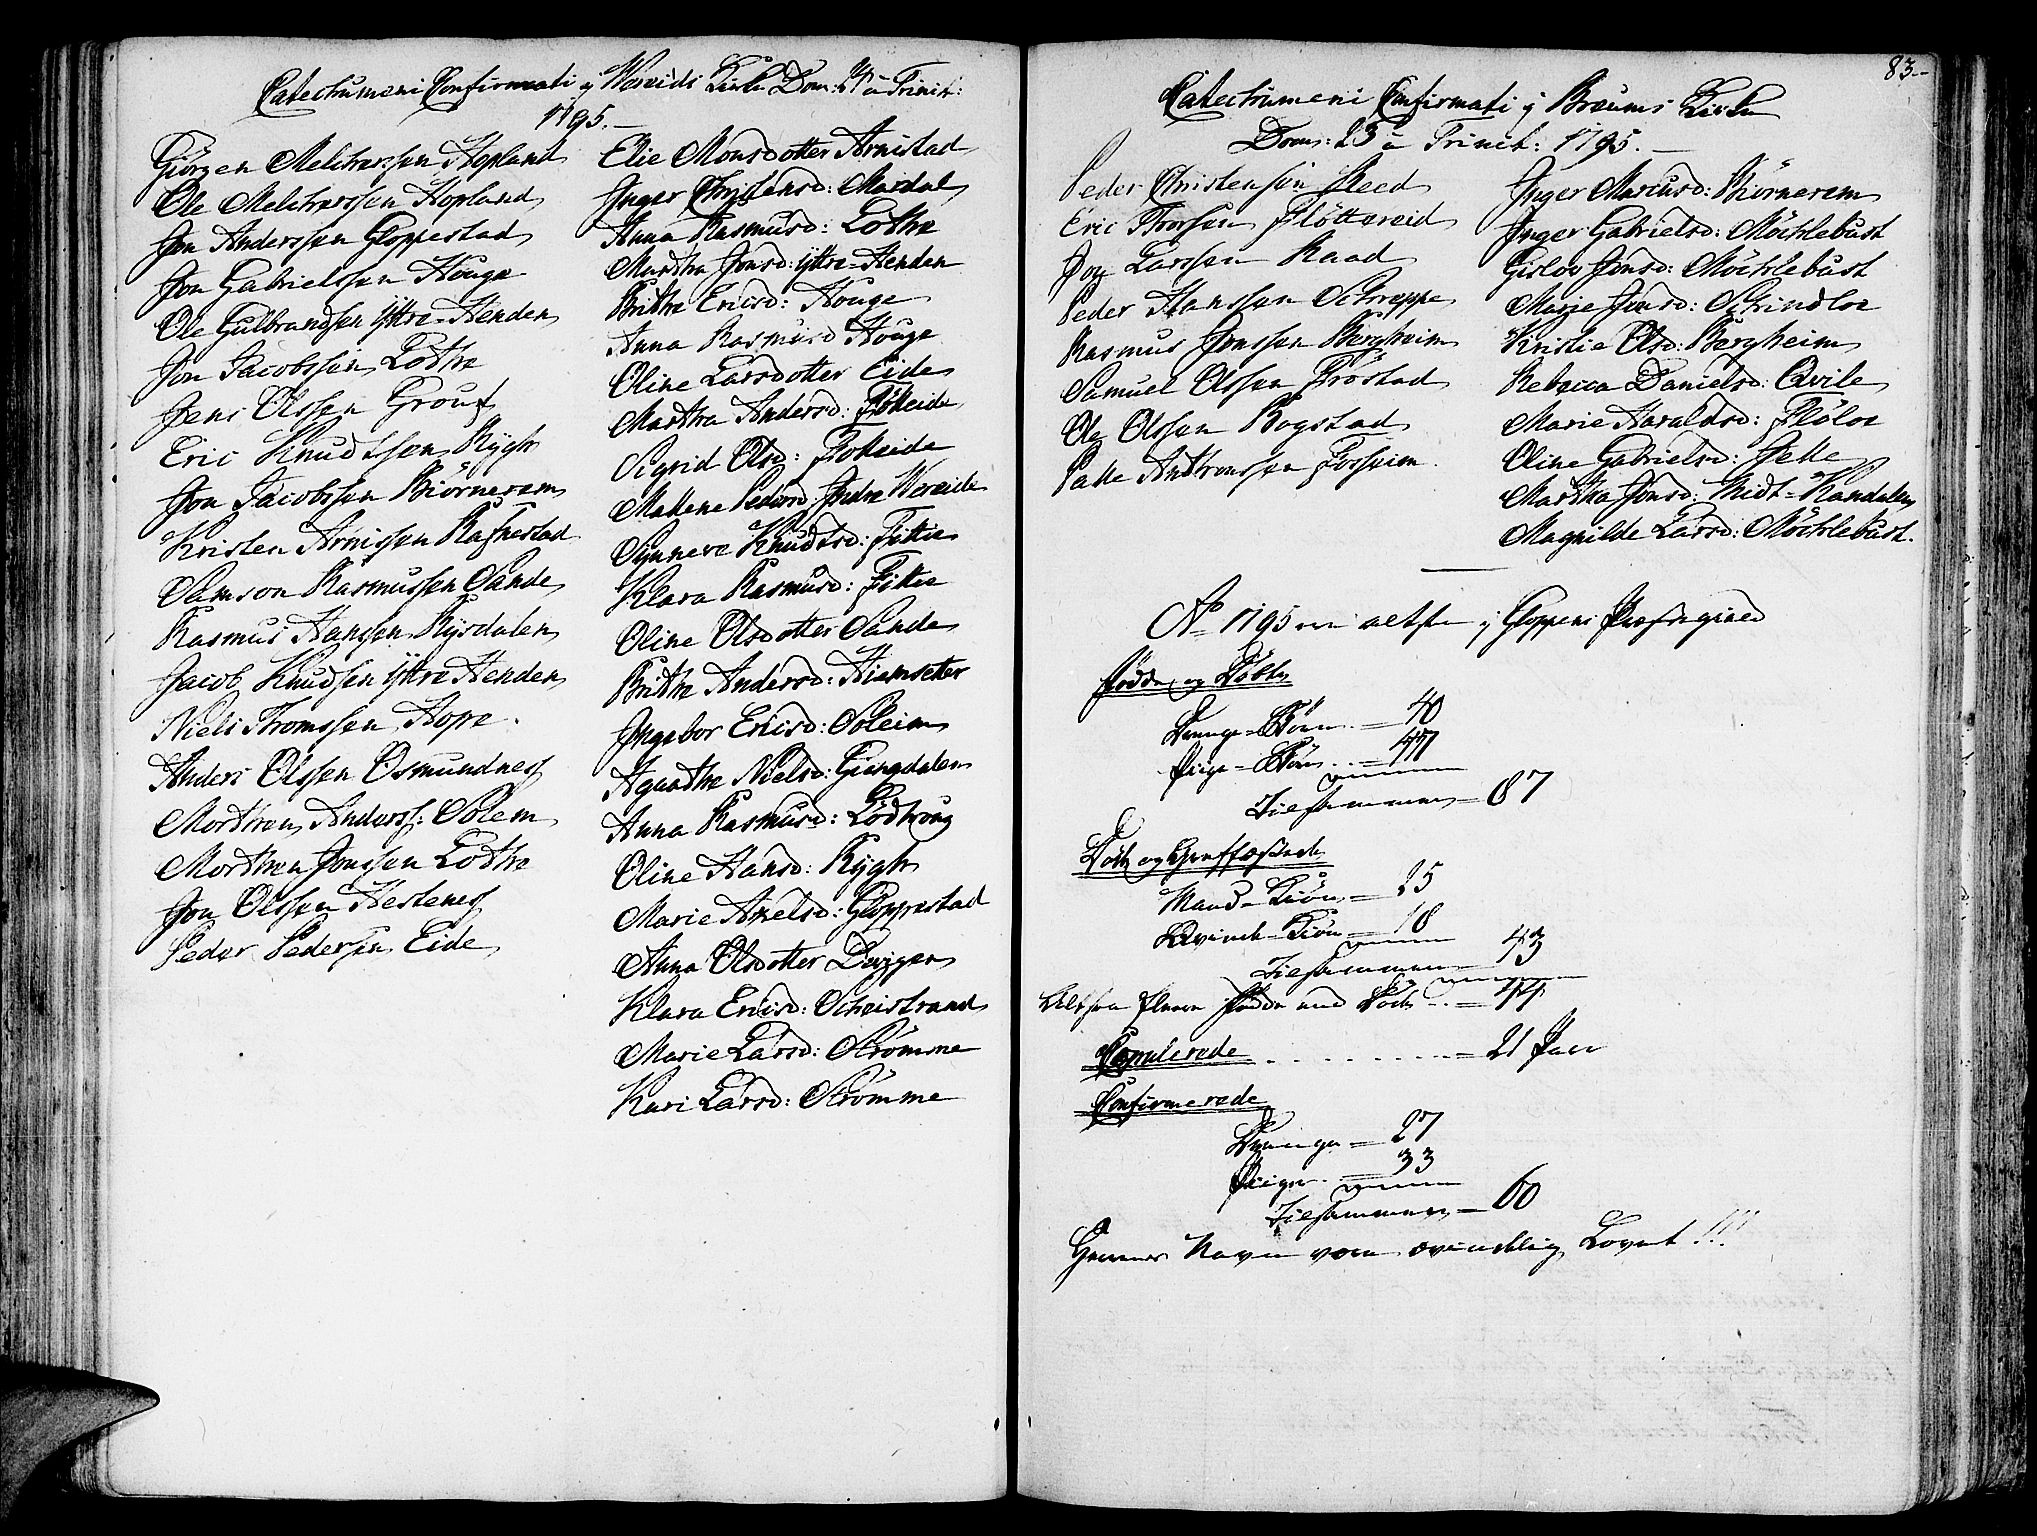 Catechumeni Confirmati j Wereids Kirke Dom: 21 a Trinit:
1795.
Giörgen Melchersen Hopland
Ole Melcherssen Hopland
Jon Anderssen Gloppestad
Jon Gabrielssen Houge
Ole Gulbrandsen Yttre-Henden
Jon Jacobssen Lothe
Jens Olssen Grouf
Eric Knudssen Rygh
Jon Jacobssen Biörnerem
Kristen Arnissen Rafnestad
Samson Rasmussen Sande
Rasmus Hanssen Rysdalen
Jacob Knudsen Yttre Henden
Niels Thomssen Hope.
Anders Olssen Osmundnes
Morthen Anderss: Solem
Morthen Jonssen Lothe
Jon Olssen Hestenes
Peder Pedersen Eide
Elie Monsdotter Arnistad
Inger Christensd: Mardal
Anna Rasmusd: Lothe
Martha Jonsd: Yttre-Henden
Brithe Ericsd: Houge
Anna Rasmusd Houge
Oline Larsdotter Eide
Martha Andersd: Fökeide
Sigrid Olsd: Fökeide
Mallene Pedersd: Indre Wereide
Synneve Knudtsd: Fittie
Klara Rasmusd: Fittie
Oline Olsdotter Sande
Brithe Andersd: Hiemseter
Ingebor Ericsd: Soleim
Agaathe Nielsd: Giengdalen
Anna Rasmusd: Lödhoug
Oline Hansd: Rygh
Marie Axelsd: Gloppestad
Anna Olsdotter Devigen
Klara Ericsd: Scheistrand
Marie Larsd: Strömme
Kari Larsd: Strömme
83.
Catechumeni Confirmati j Breums Kirke
Dom: 23 a Trinit: 1795.
Peder Christensen Reed
Eric Thorsen Flöttereid
Joy Larssen Raad
Peder Hanssen Schreppe
Rasmus Jonssen Bergheim
Samuel Olssen Fröstad
Ole Olssen Bogstad
Palle Anthonssen Fosseim.
Inger Mariusd: Biörnerem
Inger Gabrielsd: Möchlebust
Gislov Jonsd: Möchlebust
Marje Jonsd: Schindloe
Kristie Olsd: Bergheim
Rebecca Danielsd: Qvile
Marie Haraldsd: Flöloe
Oline Gabrielsd: Felle
Martha Jonsd: Midt-Kandalen
Magnilde Larsd: Möchlebust.
Ao 1795 er altsaa j Gloppens Præstegield
Fødde og Døbte
Drenge-Børn = 40
Pige-Børn.. = 47
Tilsammen = 87
Døde og Begravede
Mand-Kiön = 25
Qvinde-Kiön = 18
Tilsammen = 43
Altsaa fleere Fødde end Døde.. = 44
Copulerede . . . . . . . = 21 Paar
Confirmerede
Drenge = 27
Piiger. = 33
Tilsammen = 60
Herrens Navn være evindelig Lovet!!!